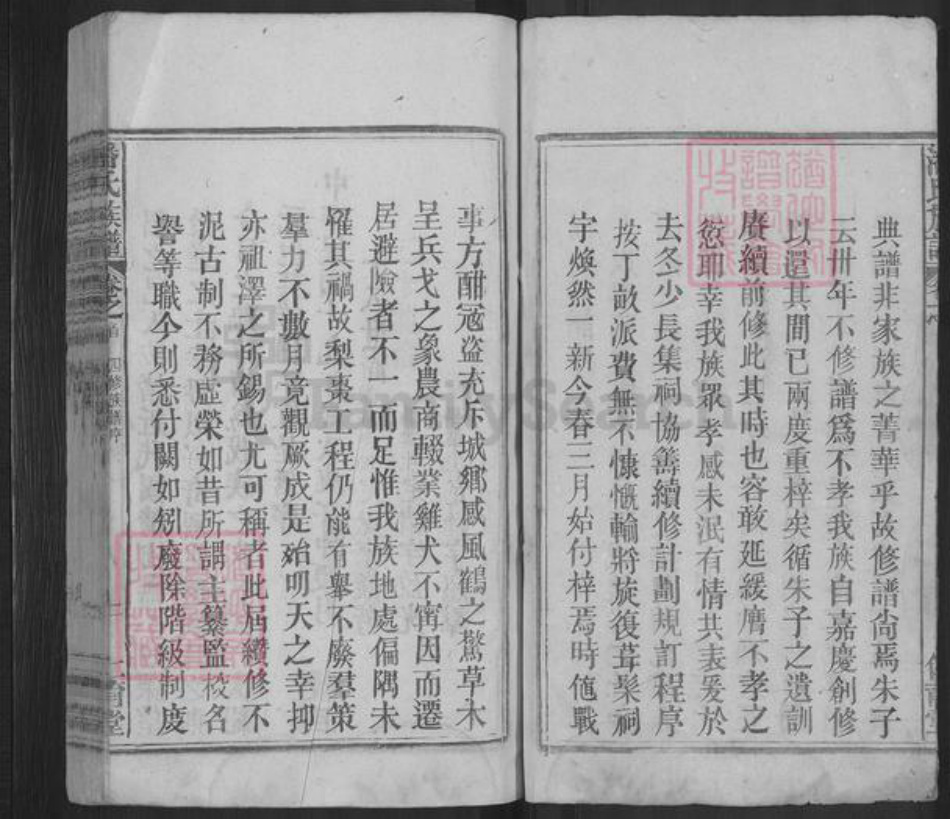 典譜非家族之菁華乎故修譜尙焉朱子
云卅年不修譜爲不孝我族自嘉慶創修
以還其間已兩度重梓矣循朱子之遺訓
賡續前修此其時也容敢延緩膺不孝之
愆耶幸我族眾孝感未泯有情共表爰於
去冬少長集祠協籌續修計劃規訂程序
按丁畝派費無不慷慨輸將旋復葺髹祠
宇煥然一新今春三月始付梓焉時値戰
事方酣寇盗充斥城鄉感風鶴之驚草木
呈兵戈之象農商輟業雞犬不寗因而遷
居避險者不一而足惟我族地處偏隅未
罹其禍故梨棗工程仍能有舉不廢羣策
羣力不數月竟觀厥成是殆叨天之幸抑
亦祖澤之所錫也尤可稱者此屆纘修不
泥古制不務虛榮如昔所謂主纂監校名
譽等職今則悉付闕如剏廢除階級制度
潘氏族譜 卷之 四修族譜序
FamilySearch